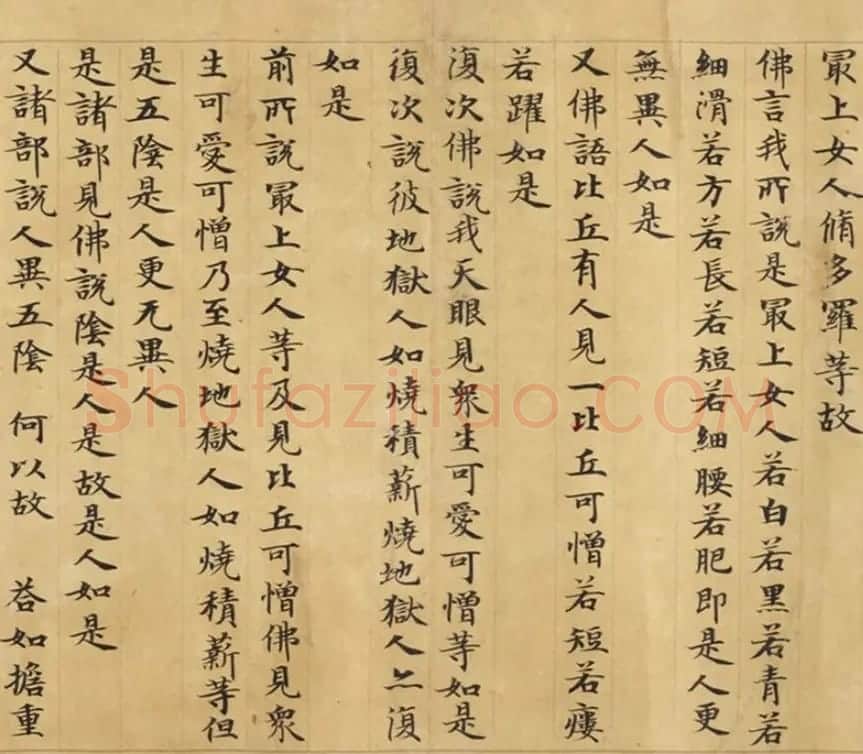 冣上女人脩多羅等故
佛言我所說是冣上女人若白若黑若青若
細滑若方若長若短若細腰若肥即是人更
無異人如是
又佛語比丘有人見一比丘可憎若短若瘻
若躍如是
復次佛說我天眼見衆生可愛可憎等如是
復次說彼地獄人如燒積薪燒地獄人亦復
如是
前所說冣上女人等及見比丘可憎佛見衆
生可愛可憎乃至燒地獄人如燒積薪等但
是五陰是人更无異人
是諸部見佛說陰是人是故是人如是
又諸部說人異五陰 何以故 荅如擔重
Shufaziliao.COM